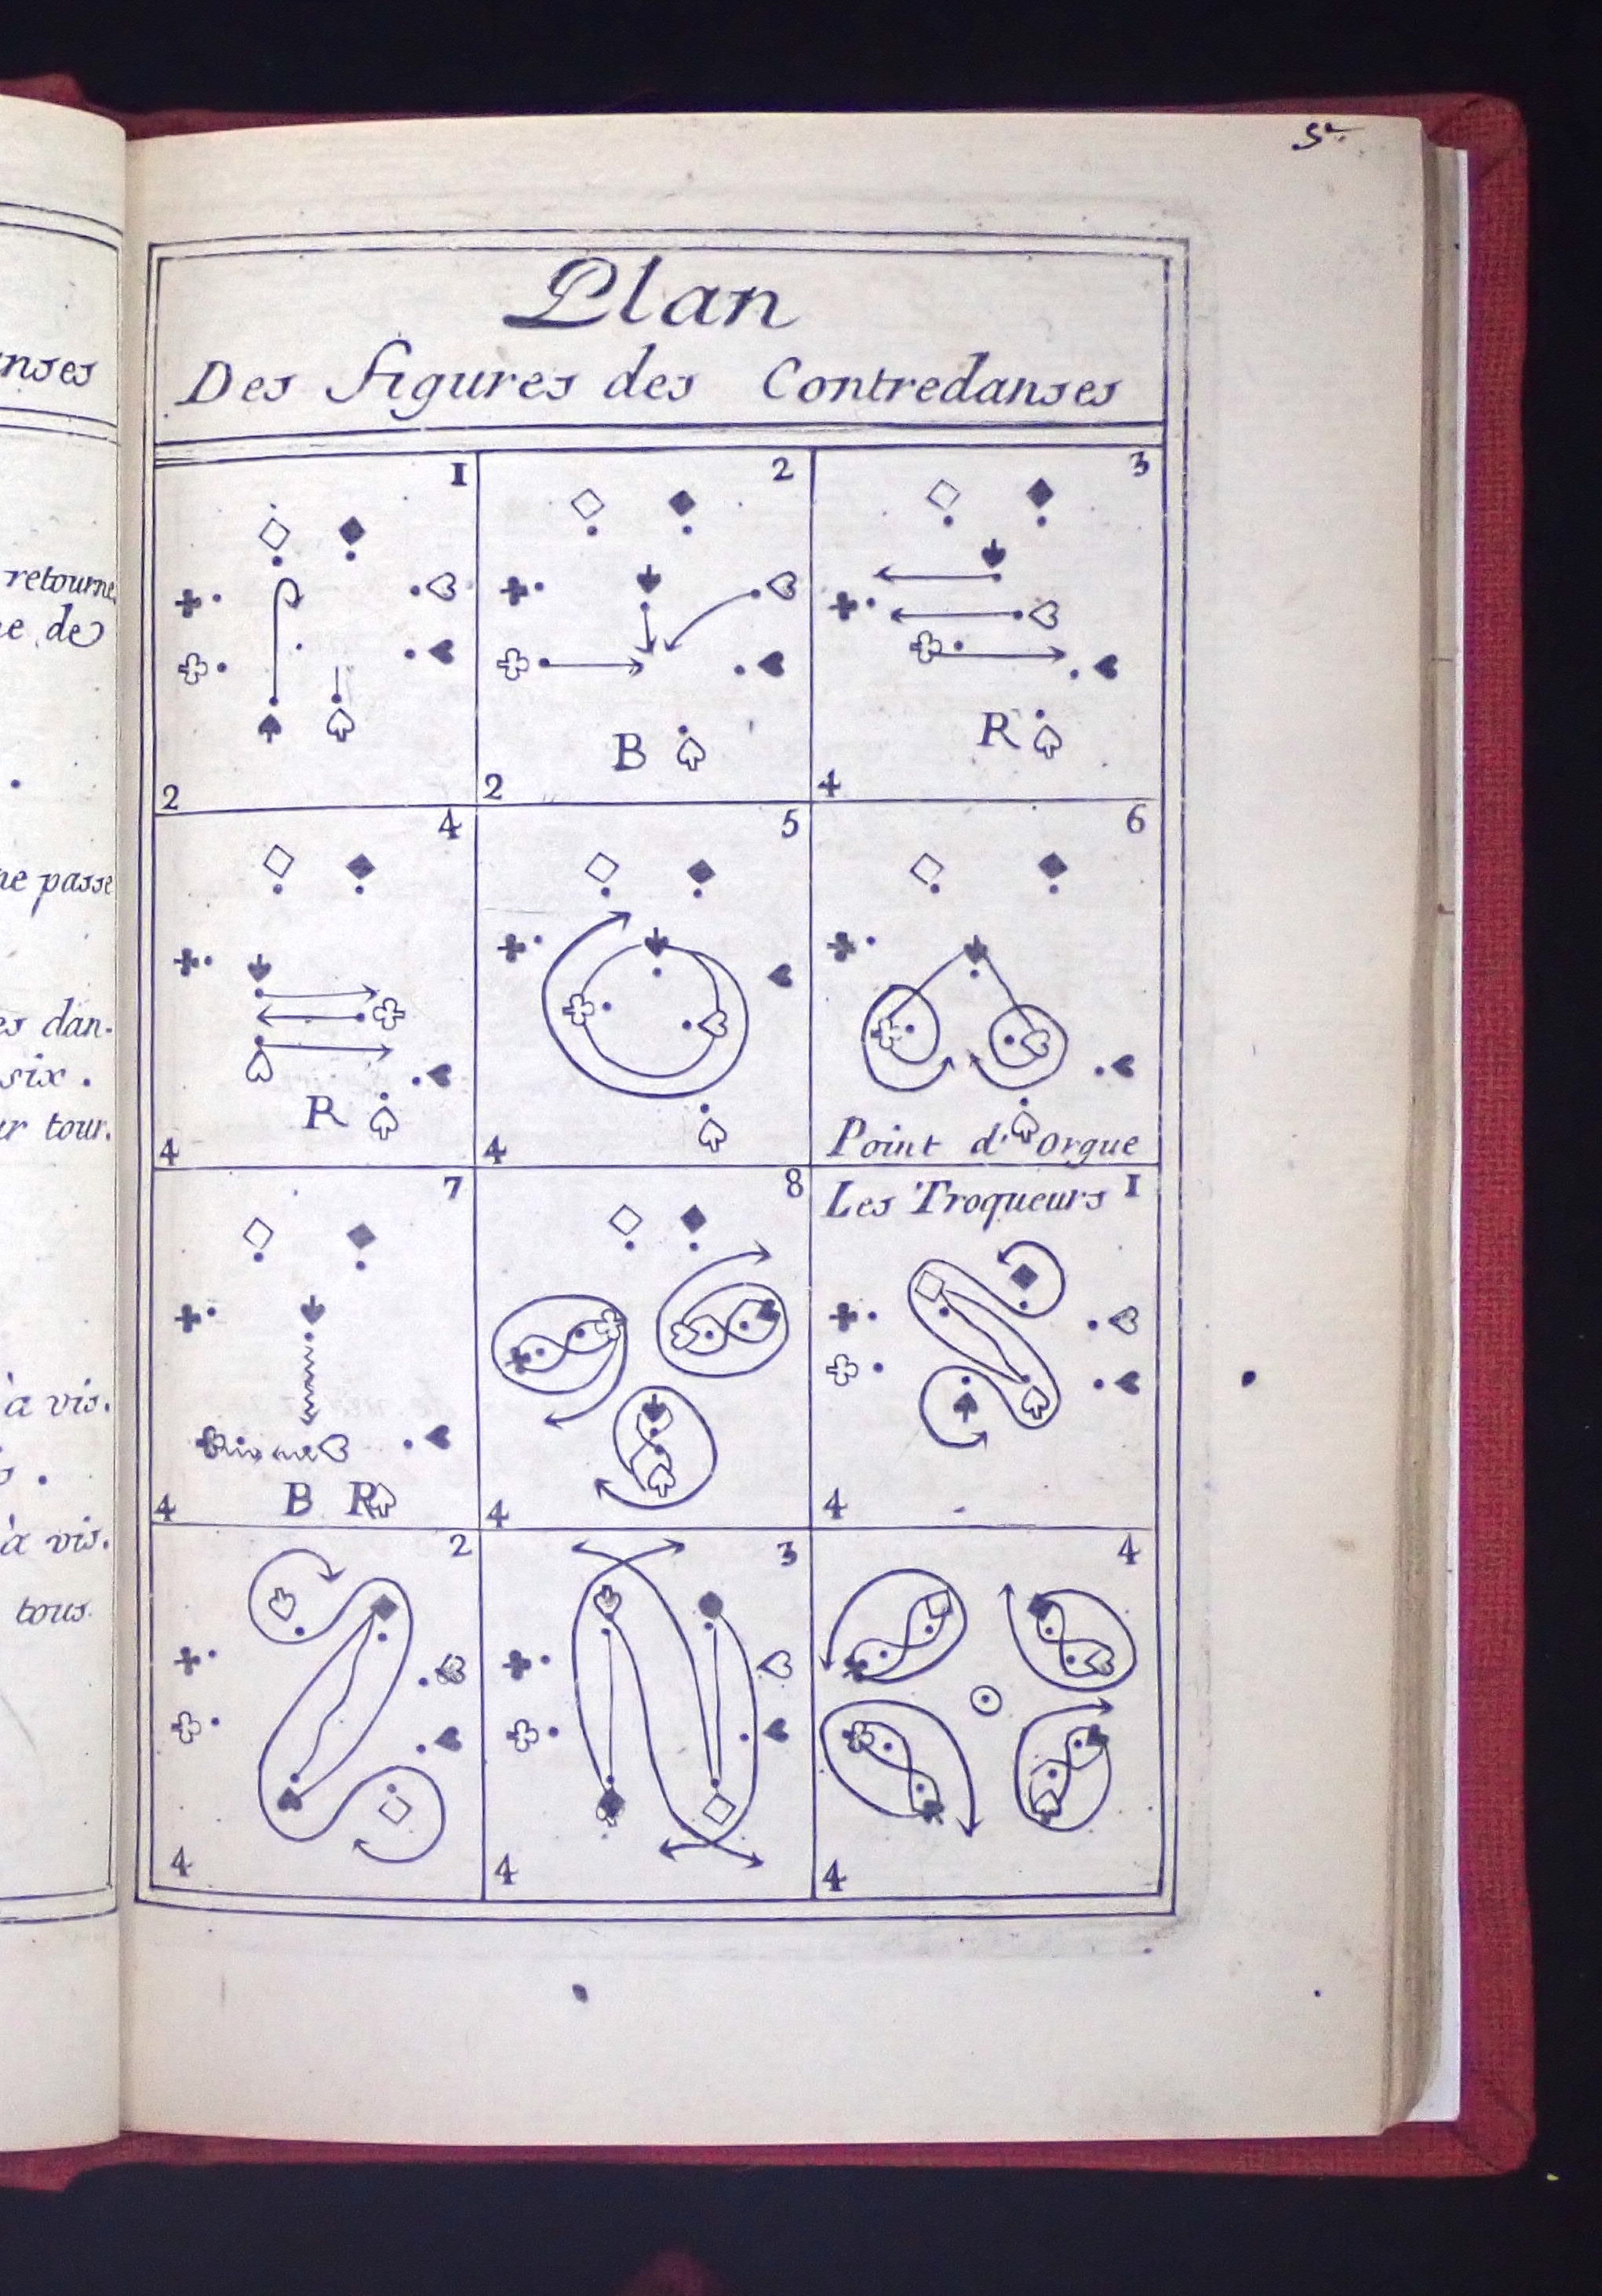 5
nses
retourne
e de
ne passe
es dan-
six.
ur tour.
à vis.
à vis.
tous
Plan
Des figures des Contredanses
1
2
2
B
2
3
R
4
4
R
4
5
4
6
Point d'orgue
7
B R
4
8
4
Les Troqueurs 1
4
2
4
3
4
4
4